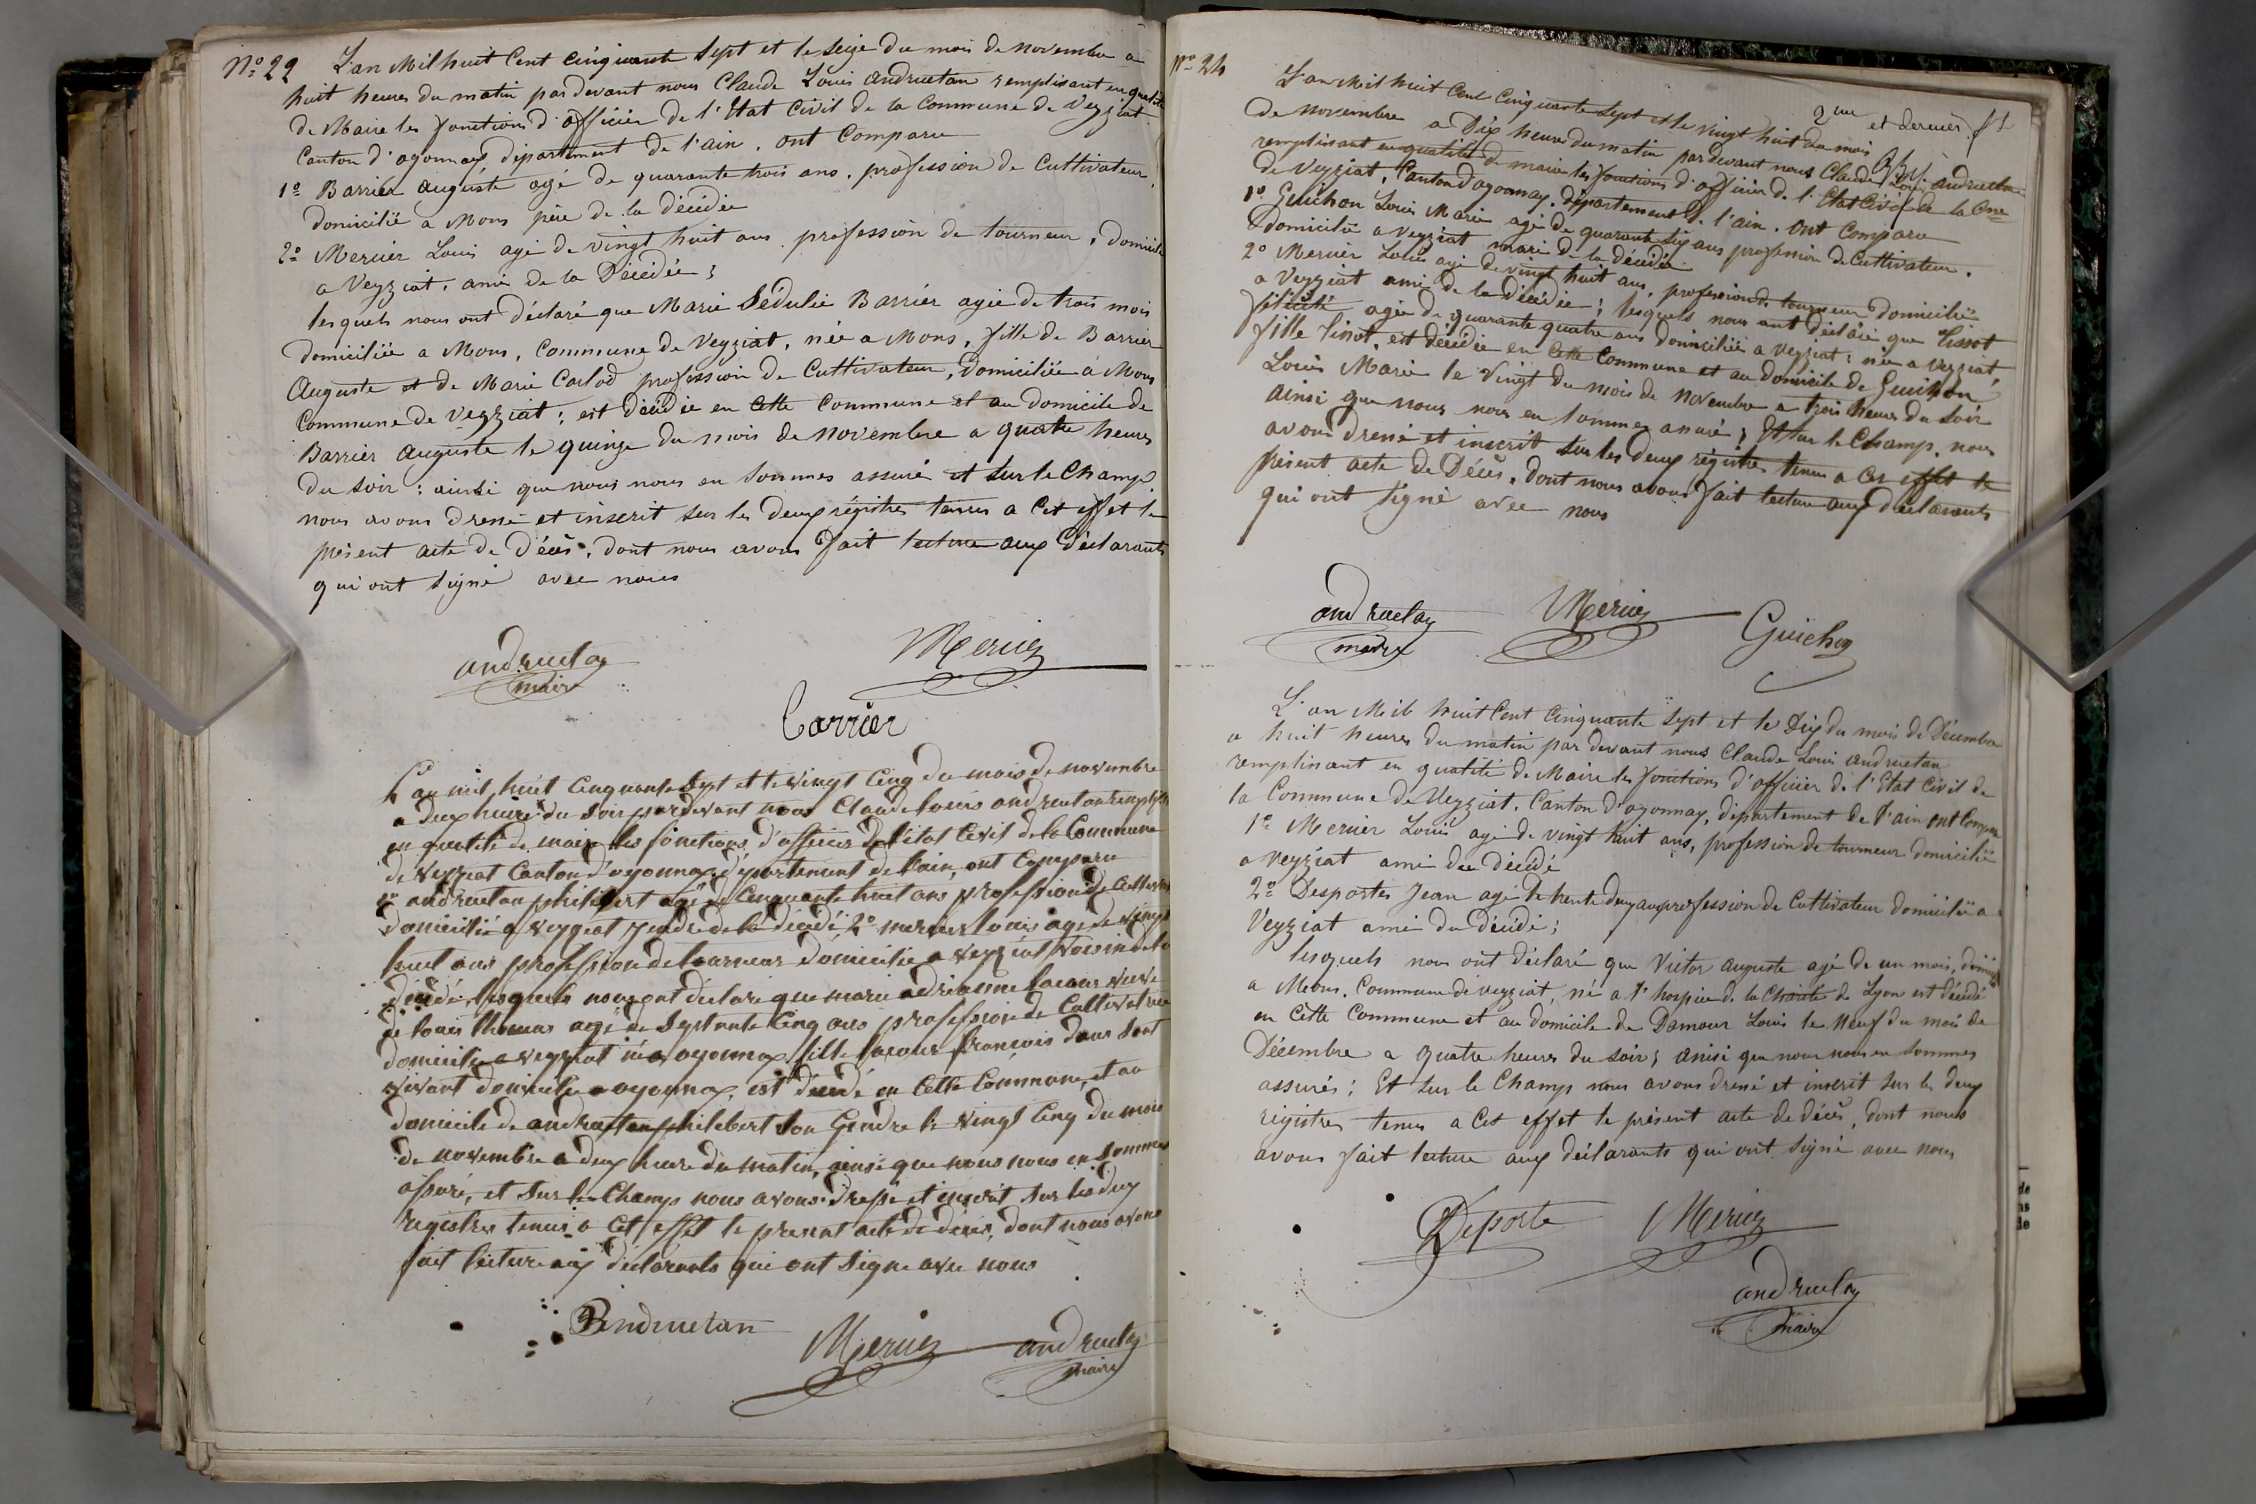 N° 22 L'an Mil huit Cent Cinquante Sept et le Seize du mois de novembre a
huit heures du matin par devant nous Claude Louis andruetan remplisant en qualité
de Maire les fonctions d'officier de l'Etat Civil de la Commune de Veyziat
Canton d'oyonnax département de l'ain. ont Comparu
1° Barrier auguste agé de quarante trois ans. profession de Cultivateur,
domicilié a Mons père de la décédée
2° Mercier Louis agé de vingt huit ans profession de tourneur, domicilié
a Veyziat, ami de la Décédée ;
lesquels nous ont déclaré que Marie Sédulie Barrier agée de trois mois
domiciliée a Mons, Commune de Veyziat, née a Mons, fille de Barrier
Auguste et de Marie Carlod profession de Cultivateur, domiciliée a Mons
Commune de Veyziat ; est décédée en Cette Commune et au domicile de
Barrier Auguste le quinze du mois de novembre a quatre heures
du soir : ainsi que nous nous en sommes assuré et sur le Champ,
nous avons dressé et inscrit sur les deux régistres tenus a Cet effet le
présent acte de Décès, dont nous avons fait lecture aux Déclarants
qui ont signé avec nous
andruetan
maire
Mercier
Barrier
L'an mil huit Cinquante Sept et le vingt Cinq du mois de novembre
a deux heure du Soir par devant nous Claude louis andruetan remplissant
en qualité de maire les fonctions d'officier de l'état Civil de la Commune
de veyziat Canton d'oyonnax département de l'ain, ont Comparu
1° andruetan philibert agé de Cinquante huit ans profession de Cultivateur
domicilié a veyziat gendre de la décédé 2° mercier louis agé de vingt
huit ans profession de tourneur domicilié a veyziat voisin de la
décédé, lesquels nous ont déclaré que marie adrienne lacour veuve
de louis thomas agé de Septante Cinq ans profession de Cultivatrice
domicilié a veyziat né a oyonnax fille lacour françois dans Sont
vivant domicilié a oyonnax, est décédé en Cette Commune, et au
domicile de andruetan philibert Son Gendre le vingt Cinq du mois
de novembre a deux heure du matin, ainsi que nous nous en Sommes
assuré, et Sur le Champ nous avons dressé et inscrit Sur les deux
registres tenus a Cet effet le present acte de décès, dont nous avons
fait lecture aux déclarants qui ont Signe avec nous
Andruetan
Mercier
andruetan
maire
N° 24
2me et dernier ft
L'an Mil huit Cent Cinquante Sept et le vingt huit du mois
de novembre a Dix heures du matin par devant nous Claude Louis andruetan
remplissant en qualité de maire les fonctions d'officier de l'Etat Civil de la Cne
de Veyziat, Canton d'oyonnax, département de l'ain. ont Comparu
1° Guichon Louis Marie agé de quarante six ans profession de Cultivateur.
domicilié a Veyziat mari de la décédée
2° Mercier Louis agé de vingt huit ans, profession de tourneur domicilié
a Veyziat ami de la décédée ; lesquels nous ont déclaré que Tissot
félicité agée de quarante quatre ans domiciliée a Veyziat ; née a Veyziat,
fille Tissot, est décédée en Cette Commune et au domicile de Guichon
Louis Marie le Vingt du mois de Novembre a trois heures du Soir
ainsi que nous nous en sommes assuré ; Et sur le Champ, nous
avons dressé et inscrit sur les deux régistres tenus a Cet effet le
présent acte de Décès, dont nous avons fait lecture aux déclarants
qui ont signé avec nous
andruetan
maire
Mercier
Guichon
L'an Mil huit Cent Cinquante Sept et le Dix du mois de Décembre
a huit heures du matin par devant nous Claude Louis andruetan
remplissant en qualité de Maire les fonctions d'officier de l'Etat Civil de
la Commune de Veyziat. Canton d'oyonnax, département de l'ain ont Comparu
1° Mercier Louis agé de vingt huit ans, profession de tourneur domicilié
a Veyziat ami du décédé
2° Desportes Jean agé de trente deux ans profession de Cultivateur domicilié a
Veyziat ami du Décédé ;
lesquels nous ont déclaré que Victor Auguste agé de un mois, domicilié
a Mons. Commune de veyziat, né a l'hospice de la Charité de Lyon est décédé
en Cette Commune et au domicile de Damour Louis le Neuf du mois de
Décembre a quatre heures du Soir ; ainsi que nous nous en sommes
assurés : Et sur le Champ nous avons dressé et inscrit sur les deux
régistres tenus a Cet effet le présent acte de décès, dont nous
avons fait lecture aux déclarants qui ont signé avec nous
Deporte
Mercier
andruetan
maire
de
ns
de